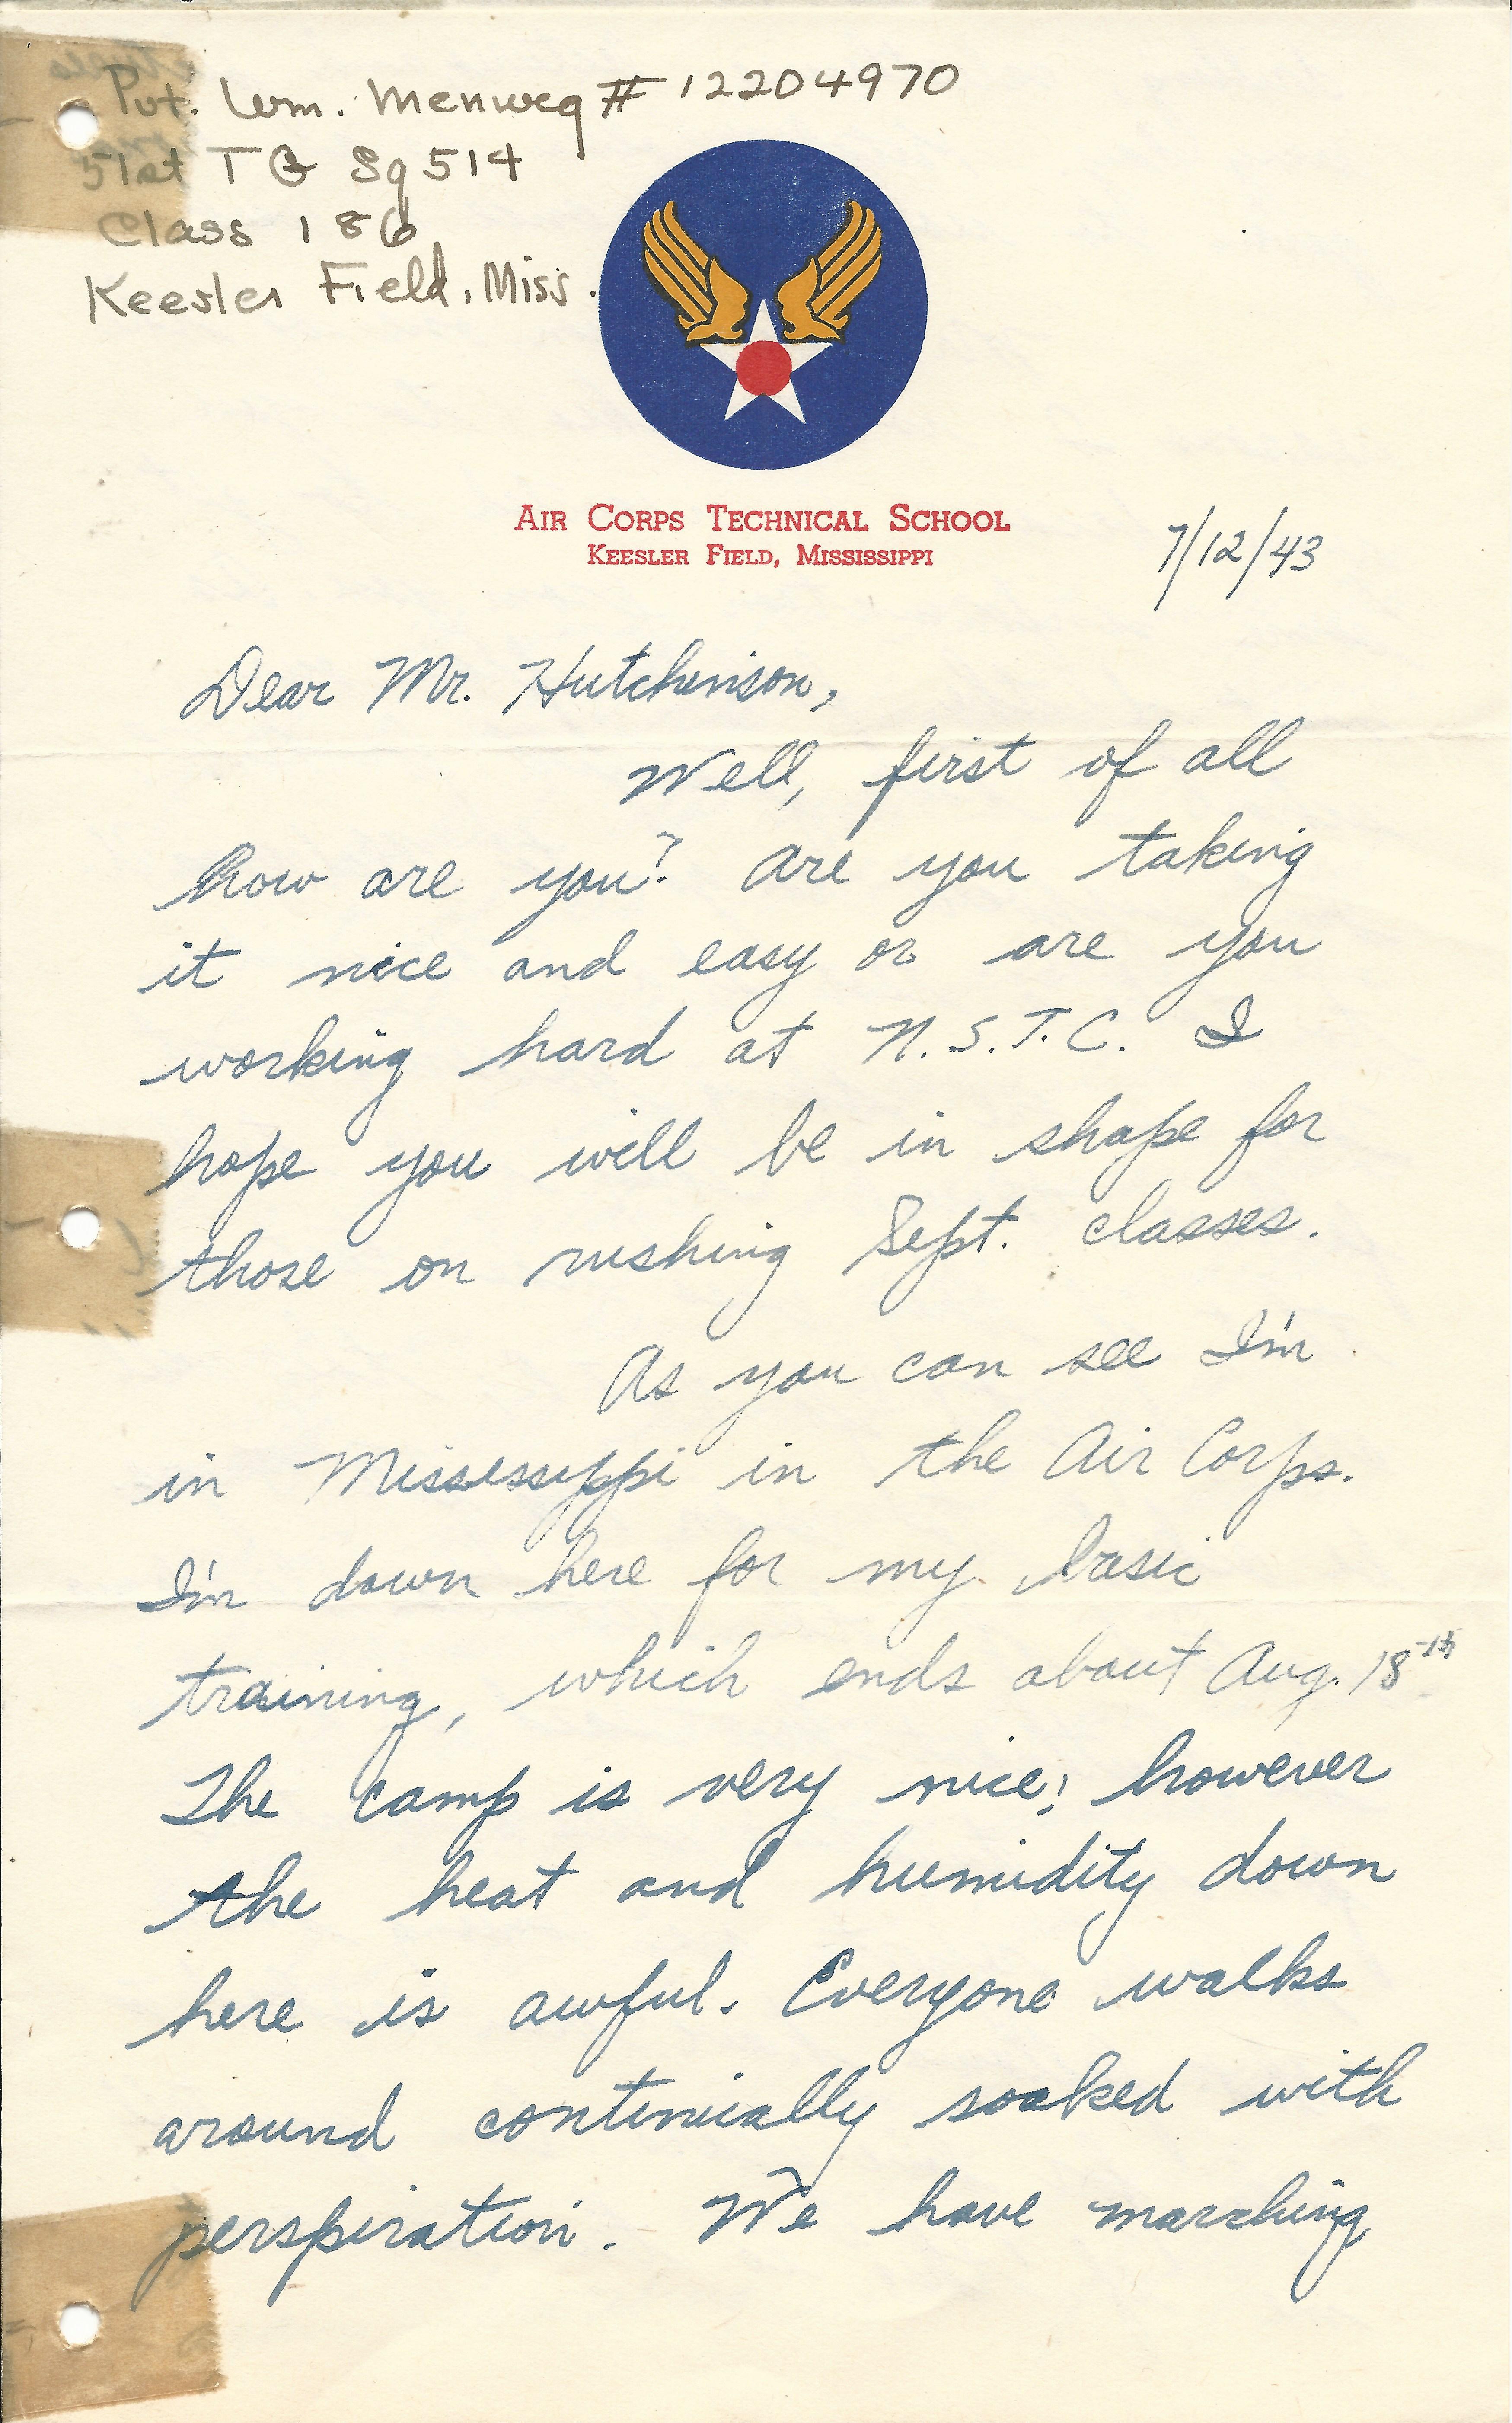 Pvt. Wm. Menweg # 12204970
51st T G Sq 514
Class 186
Keesler Field, Miss.
AIR CORPS TECHNICAL SCHOOL
KEESLER FIELD, MISSISSIPPI
7/12/43
Dear Mr. Hutchinson,
Well, first of all
how are you? Are you taking
it nice and easy or are you
working hard at N.S.T.C. I
hope you will be in shape for
those on rushing Sept. classes.
As you can see I'm
in Mississippi in the Air Corps.
I'm down here for my basic
training, which ends about Aug. 18th
The camp is very nice; however
the heat and humidity down
here is awful. Everyone walks
around continually soaked with
perspiration. We have marching